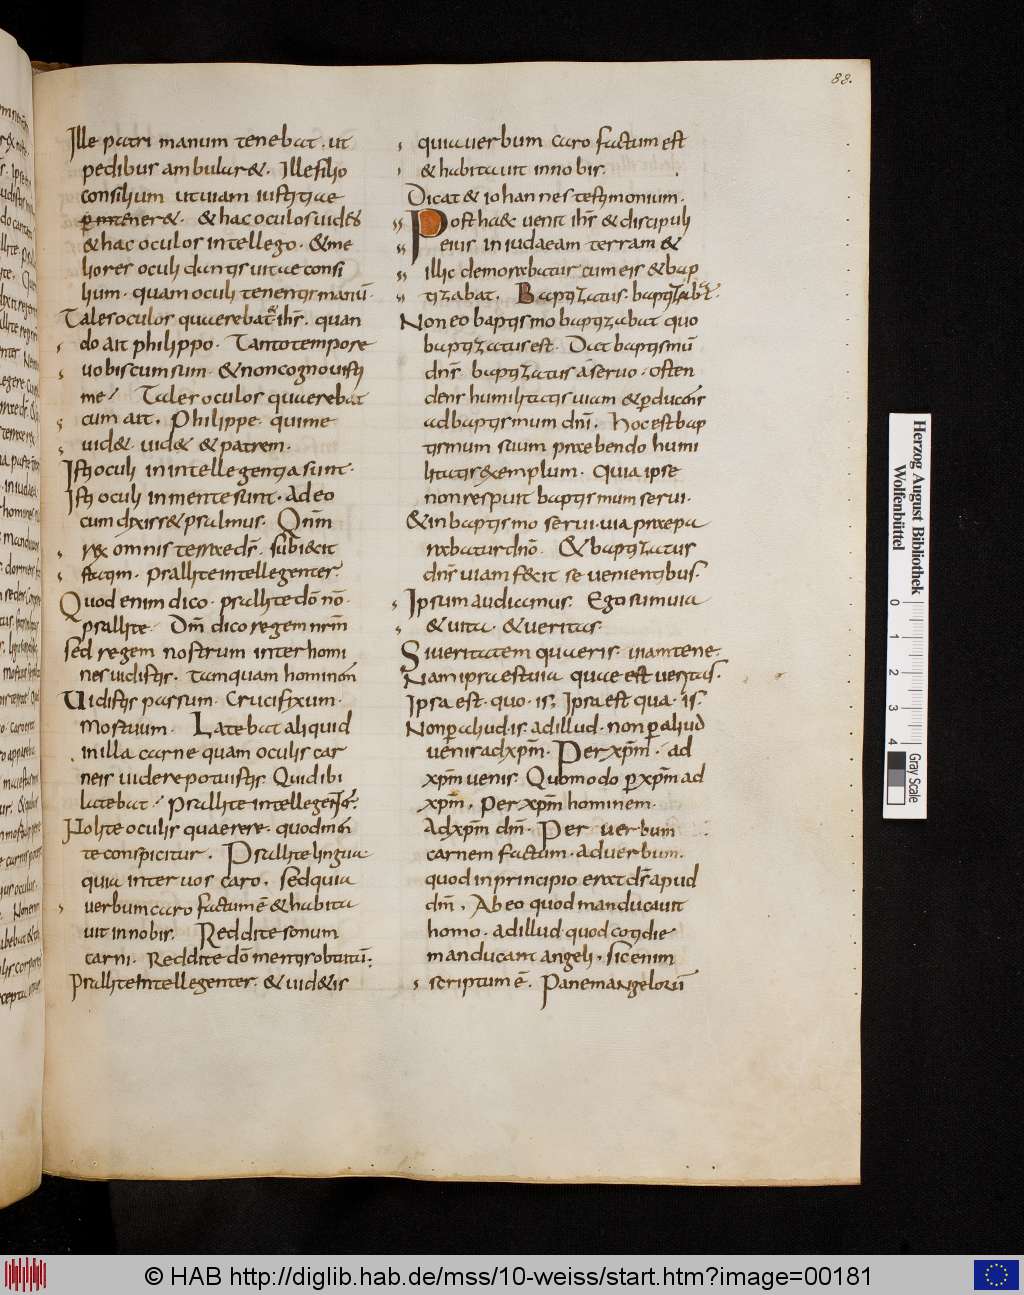 88.
Ille patri manum tenebat. ut
pedibus ambular&. Ille filio
consilium ut uiam iustitiae
& hac oculos uid&is
& hac oculor intellego. & me
liores oculi dantis uitae consi
lium. quam oculi tenentis manū.
Tales oculos quaerebat ihs. quan
do ait philippo. Tanto tempore
uobiscum sum. & non cognouistis
me. Tales oculos quaerebat
cum ait. Philippe. qui me
uid&. uid& & patrem.
Isti oculi in intellegentia sunt.
Isti oculi in mente sunt. Adeo
cum dixiss& psalmus. Qnm
rex omnis terrae ds. subiecit
statim. psallite intellegenter.
Quod enim dico. psallite dō nō.
psallite. Dm dico regem nrm
sed regem nostrum inter homi
nes uidistis. tamquam hominem
Uidistis passum. Crucifixum.
Mortuum. Latebat aliquid
in illa carne quam oculis car
neis uidere potuistis. Quid ibi
latebat. Psallite intellegenter.
Nolite oculis quaerere. quod men
te conspicitur. Psallite lingua
quia inter uos caro. sed quia
uerbum caro factum ē & habita
uit in nobis. Reddite sonum
carni. Reddite dō mentis obtutū.
Psallite intellegenter. & uid&is
quia uerbum caro factum est
& habitauit in nobis.
Dicat & iohannes testimonium.
Post haec uenit ihs & discipuli
eius in iudaeam terram &
illic demorabatur cum eis & bap
tizabat. Baptizatus. baptizabat.
Non eo baptismo baptizabat quo
baptizatus est. Dat baptismū
dns baptizatus a seruo. osten
dens humilitatis uiam & perducens
ad baptismum dni. Hoc est bap
tismum suum praebendo humi
litatis exemplum. Quia ipse
non respuit baptismum serui.
& in baptismo serui uia praepa
rabatur dnō. & baptizatus
dns uiam fecit se uenientibus.
Ipsum audiamus. Ego sum uia
& uita. & ueritas.
Si ueritatem quaeris. uiam tene.
Nam ipsa est uia quae est ueritas.
Ipsa est. quo. is. Ipsa est qua. is.
Non p aliud. is. ad illud. non p aliud
uenis ad xpm. Per xpm. ad
xpm uenis. Quomodo p xpm ad
xpm. Per xpm hominem.
Ad xpm dm. Per uerbum
carnem factum. ad uerbum.
quod in principio erat ds apud
dm. Ab eo quod manducauit
homo. ad illud quod cotidie
manducant angeli. sic enim
scriptum ē. Panem angelorū
Herzog August Bibliothek
Wolfenbüttel
0 1 2 3 4
Gray Scale
© HAB http://diglib.hab.de/mss/10-weiss/start.htm?image=00181